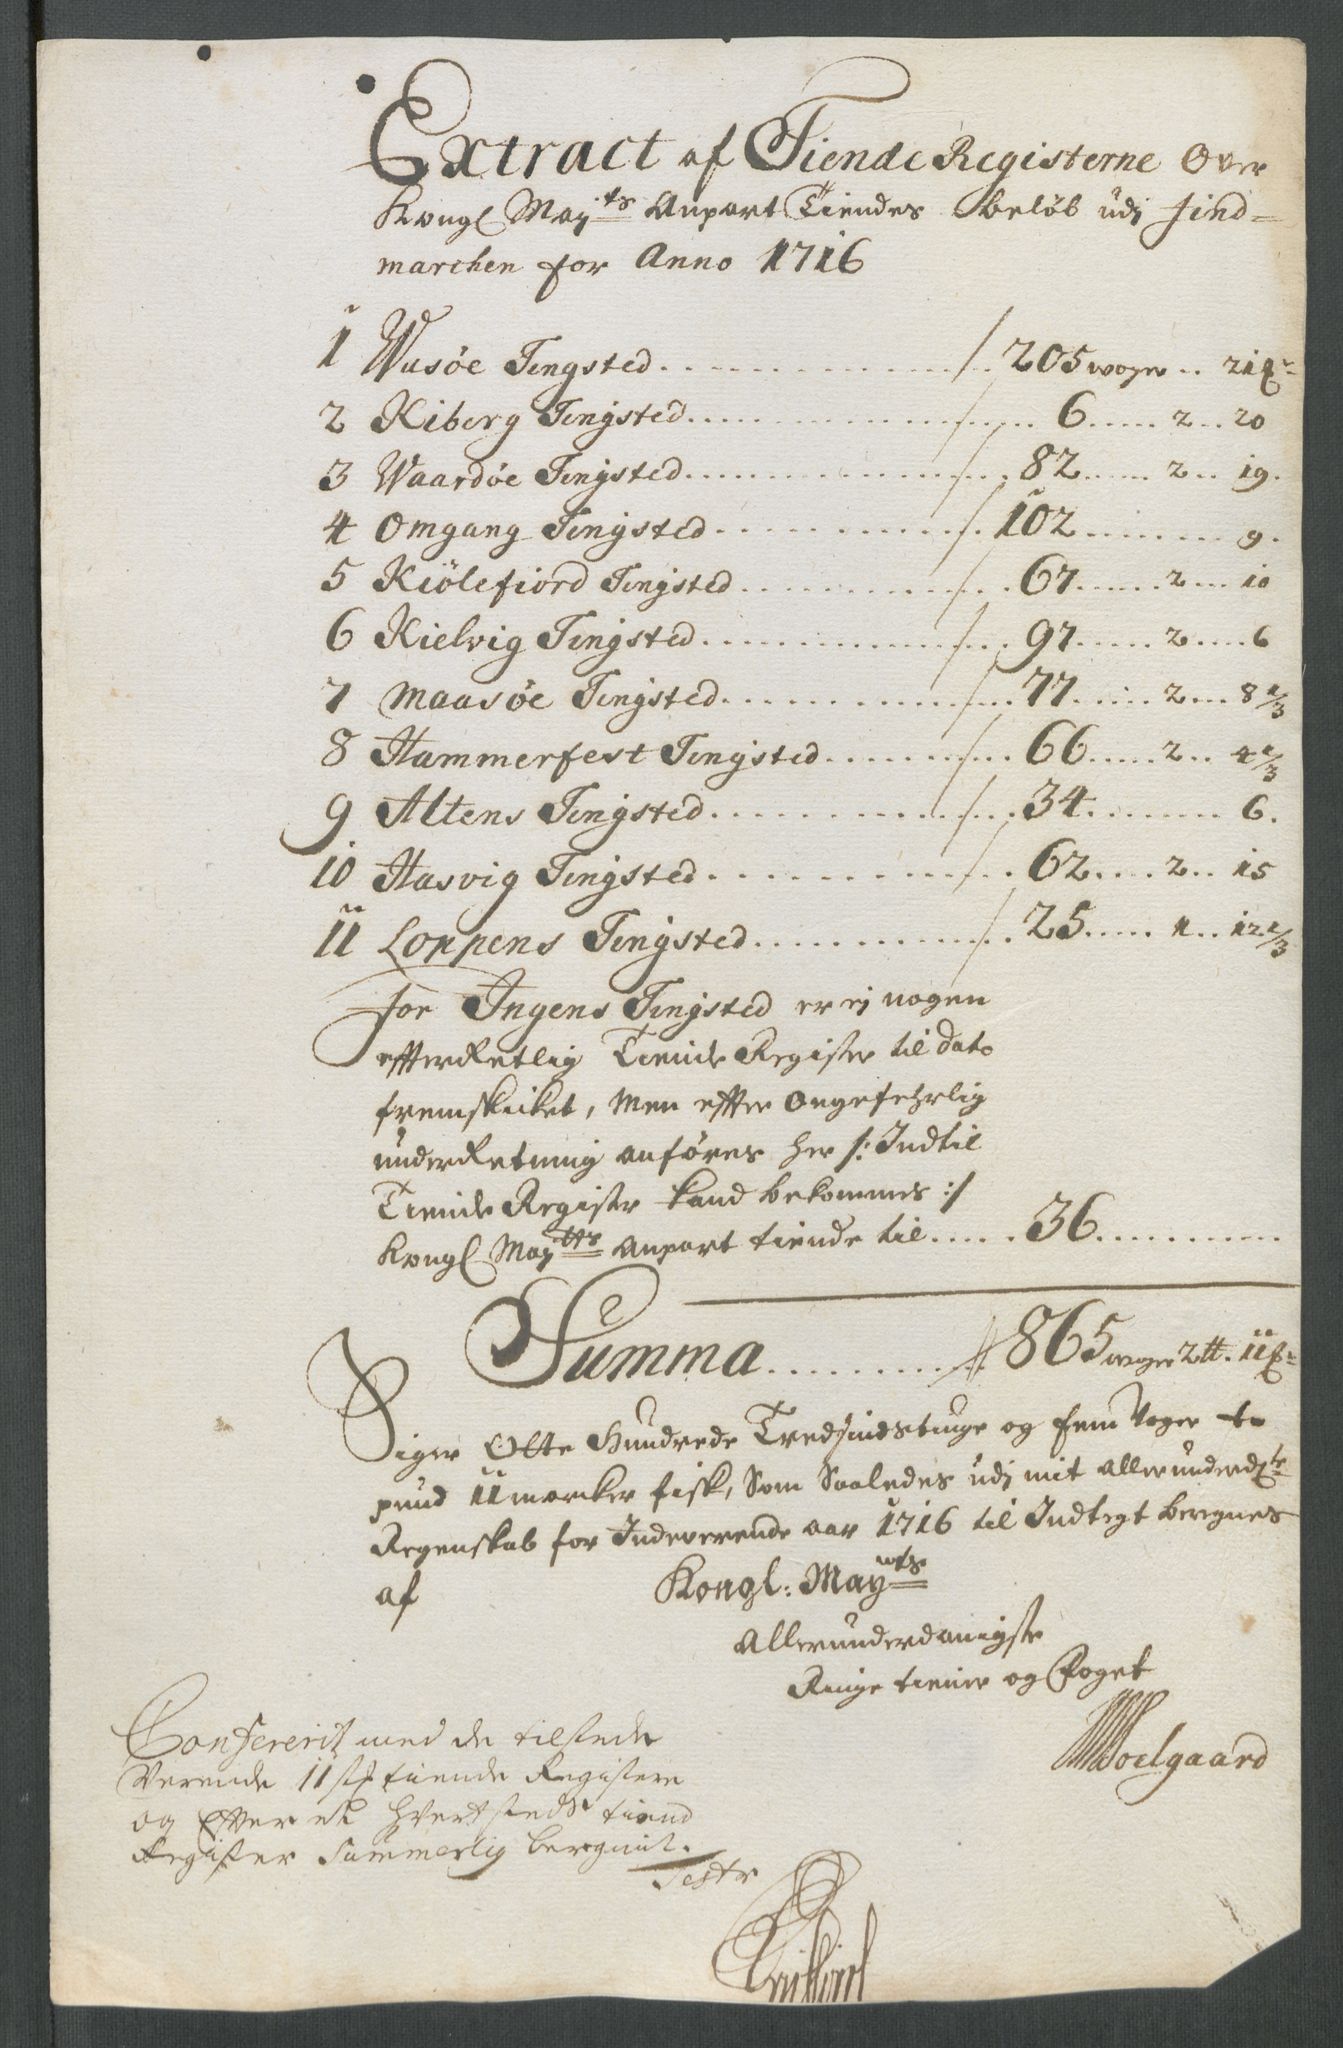 Extract af Tiende Registerne Over
Kongl May:ts Anpart Tiendes beløb udj find=
marchen for Anno 1716
1 Wasöe Tingsted 205 woger 21 ℔
2 Kiberg Tingsted 6 2 20
3 Waardöe Tingsted 82 2 19.
4 Omgang Tingsted 102 9.
5 Kiölefiord Tingsted 67 2 10
6 Kielvig Tingsted 97 2 6
7 Maasöe Tingsted 77 2 8 1/3
8 Hammerfest Tingsted 66 2 4 1/3
9 Altens Tingsted 34 6.
10 Hasvig Tingsted 62 2 15
11 Loppens Tingsted 25 1 12 1/3
for Ingens Tingsted er ej nogen
effterRetlig Tiende Register til dato
fremskiket, Men effter Ongefehrlig
underRetning anföres her /: Indtil
Tiende Register kand bekommes :/
Kongl May:tts Anpart tiende til 36
Summa 865 woger 2 tt. 11 ℔
Siger Otte Hundrede Tredsindstiuge og fem Voger to
pund 11 marker fisk, Som Saaledes udj mit allerunderd:te
Regenskab for Indeverende aar 1716 til Indtegt beregnes
af Kongl: May:tts
Allerunderdanigste
Ringe tiener og Foget
Soelgaard
Confererit med de tilstede
Verende 11 st: tiende Registere
og Efter et hvert steds tiend
Register Summerlig beregnit.
Testr